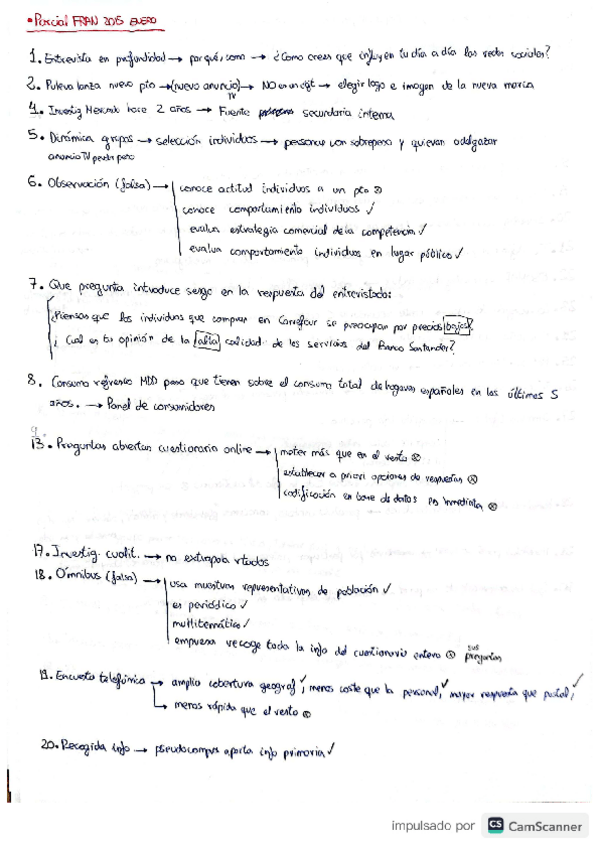 • Parcial FRAN 2015 ENERO
1. Entrevista en profundidad → por qué, como → ¿Como crees que influyen tu día a día las redes sociales?
2. Puleva lanza nuevo pto → (nuevo anuncio) → NO en un cgt → elegir logo e imagen de la nueva marca
TV
4. Investig Mercado hace 2 años → Fuente secundaria interna
5. Dinámica grupos → selección individuos → personas con sobrepeso y quieran adelgazar
anuncio TV perder peso
6. Observación (falsa) → conoce actitud individuos a un pto ⊗
conoce comportamiento individuos ✓
evalua estrategia comercial de la competencia ✓
evalua comportamiento individuos en lugar público ✓
7. Que pregunta introduce sesgo en la respuesta del entrevistado:
¿Piensas que los individuos que compran en Carrefour se preocupan por precios bajos?
¿Cual es tu opinión de la alta calidad de los servicios del Banco Santander?
8. Consumo refresco MDD peso que tienen sobre el consumo total de hogares españoles en los últimos 5
años. → Panel de consumidores
9.
13. Preguntas abiertas cuestionario online → meter más que en el resto ⊗
establecer a priori opciones de respuestas ⊗
codificación en base de datos es inmediata ⊗
17. Investig. cualit. → no extrapola rtados
18. Omnibus (falsa) → usa muestras representativas de población ✓
es periódico ✓
multitemático ✓
empresa recoge toda la info del cuestionario entero ⊗ sus preguntas
19. Encuesta telefónica → amplia cobertura geograf ✓, menos coste que la personal ✓, mayor respuesta que postal ✓,
→ menos rápida que el resto ⊗
20. Recogida info → pseudocompra aporta info primaria ✓
impulsado por CS CamScanner